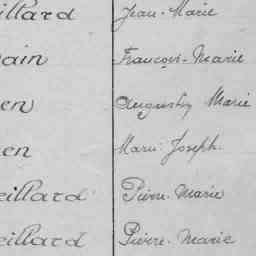 illard Jean-Marie
ain François-Marie
en Augustin Marie
en Marie Joseph
eillard Pierre-Marie
eillard Pierre-Marie